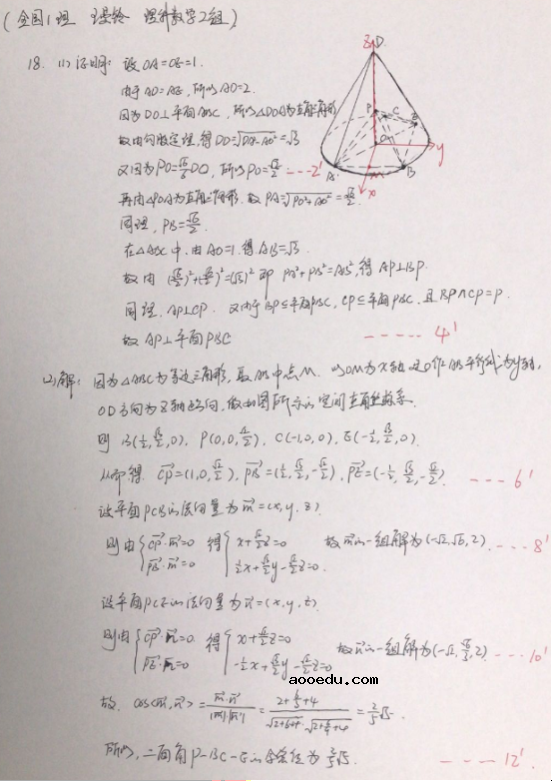 (全国1理 理科数学2组)
18. (1) 证明: 设OA=OE=1.
由于AD=AE, 所以AD=2.
因为DO⊥平面ABC, 所以△DOA为直角三角形
故由勾股定理, 得DO=√(DA²-AO²)=√3
又因为PO=√6/6 DO, 所以PO=√2/2 ---2'
再由△POA为直角三角形. 故PA=√(PO²+AO²)=√6/2
同理, PB=√6/2
在△ABC中. 由AO=1. 得AB=√3.
故由(√6/2)²+(√6/2)²=(√3)² 即 PA²+PB²=AB², 得AP⊥BP.
同理, AP⊥CP. 又由于BP⊆平面PBC, CP⊆平面PBC, 且BP∩CP=P.
故AP⊥平面PBC -----4'
(2)解: 因为△ABC为等边三角形, 取AB中点M. 以OM为x轴 过O作AB平行线为y轴,
OD方向为z轴正方向, 做如图所示的空间直角坐标系.
则B(½,√3/2,0), P(0,0,√2/2), C(-1,0,0), E(-½,√3/2,0).
从而得. CP=(1,0,√2/2), PB=(½,√3/2,-√2/2), PE=(-½,√3/2,-√2/2). ---6'
设平面PCB的法向量为m=(x,y,z)
则由{CP·m=0 PB·m=0 得{x+√2/2z=0 ½x+√3/2y-√2/2z=0. 故m的一组解为(-√2,√6,2). ---8'
设平面PCE的法向量为n=(x,y,z)
则由{CP·n=0 PE·n=0 得{x+√2/2z=0 -½x+√3/2y-√2/2z=0 故n的一组解为(-√2,√6/3,2) ---10'
aooedu.com
故. cos<m,n>=m·n/|m||n|=(2+6/3+4)/(√(2+6+4)·√(2+6/9+4))=2/5√5.
所以, 二面角P-BC-E的余弦值为2/5√5. ---12'
z
D
P
C
E
O
y
A
M
B
x